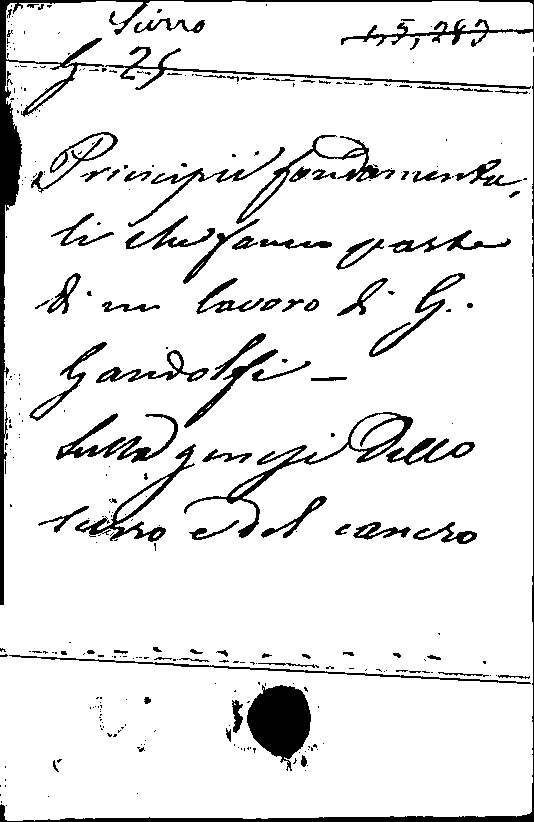 Scirro
45,283
G 25
Principii fondamenta,
li che fanno parte
di un lavoro di G.
Gandolfi —
Sulla genesi dello
scirro e del cancro